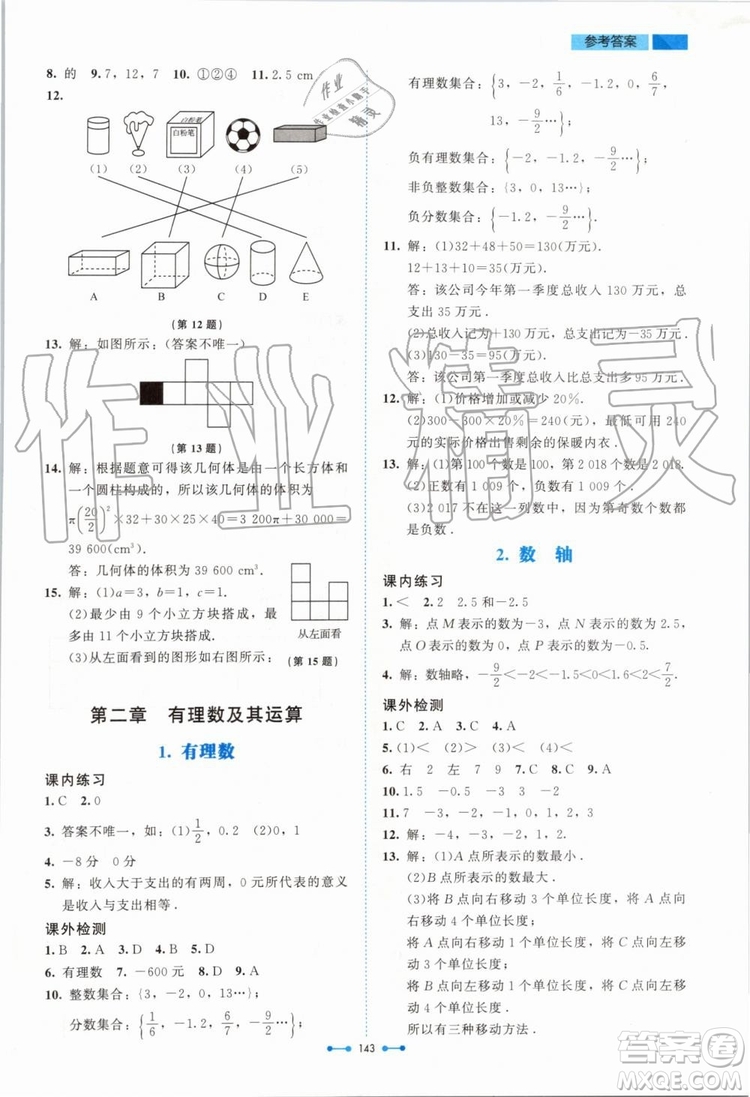 参考答案
8. 的 9. 7，12，7 10. ①②④ 11. 2.5 cm
12.
白粉笔
白粉笔
(1) (2) (3) (4) (5)
A B C D E
(第 12 题)
13. 解：如图所示：(答案不唯一)
(第 13 题)
14. 解：根据题意可得该几何体是由一个长方体和
一个圆柱构成的，所以这个几何体的体积为
π(20/2)²×32+30×25×40=3 200π+30 000≈
39 600(cm³).
答：几何体的体积为 39 600 cm³.
15. 解：(1)a=3，b=1，c=1
(2)最少由 9 个小立方块搭成，最
多由 11 个小立方块搭成.
(3)从左面看到的图形如右图所示：
从左面看
(第 15 题)
第二章 有理数及其运算
1. 有理数
课内练习
1. C 2. 0
3. 答案不唯一，如：(1)1/2，0.2 (2)0，1
4. －8 分 0 分
5. 解：收入大于支出的有两周，0 元所代表的意义
为收入等于支出.
课外检测
1. B 2. A 3. D 4. A 5. D
6. 有理数 7. －600 元 8. D 9. A
10. 整数集合：{3，－2，0，13…}；
分数集合：{1/6，－1.2，6/7，－9/2…}；
有理数集合：{3，－2，1/6，－1.2，0，6/7，
13，－9/2…}；
负有理数集合：{－2，－1.2，－9/2…}；
非负整数集合：{3，0，13…}；
负分数集合：{－1.2，－9/2…}.
11. 解：(1)32+48+50=130(万元).
12+13+10=35(万元).
答：该公司今年第一季度总收入 130 万元，总
支出 35 万元.
(2)总收入记为+130 万元，总支出记为－35 万元.
(3)130－35=95(万元).
答：该公司第一季度总收入比总支出多 95 万元.
12. 解：(1)价格增加或减少 20%.
(2)300－300×20%=240(元)，最低可用 240
元的实际价格出售剩余的保暖内衣.
13. 解：(1)第 100 个数是 100，第 2 018 个数是 2 018.
(2)正数有 1 009 个，负数有 1 009 个.
(3)2 017 不在这列数中，因为第奇数个数都
是负数.
2. 数 轴
课内练习
1. < 2. 2 2.5 和－2.5
3. 解：点 M 表示的数为－3，点 N 表示的数为 2.5，
点 O 表示的数为 0，点 P 表示的数为－5.
4. 解：数轴略，－9/2<－2<－1/2<0<1.5<2
课外检测
1. C 2. A 3. C 4. A
5. (1)< (2)> (3)< (4)<
6. 右 2 左 7 9 7. C 8. C 9. A
10. 1.5 －0.5 －3 3 －2
11. 7 －3 －1 2
12. 解：－4，－3，－2，－1
13. 解：(1)A 点所表示的数最小.
(2)B 点所表示的数最大.
(3)将 B 点向左移动 3 个单位长度，将 C 点向
左移动 4 个单位长度；
将 A 点向右移动 1 个单位长度，将 C 点向左移
动 4 个单位长度；
将 A 点向右移动 4 个单位长度，将 B 点向右移
动 3 个单位长度.
所以有三种移动方法.
143
作业精灵
答案圈
MXQE.COM